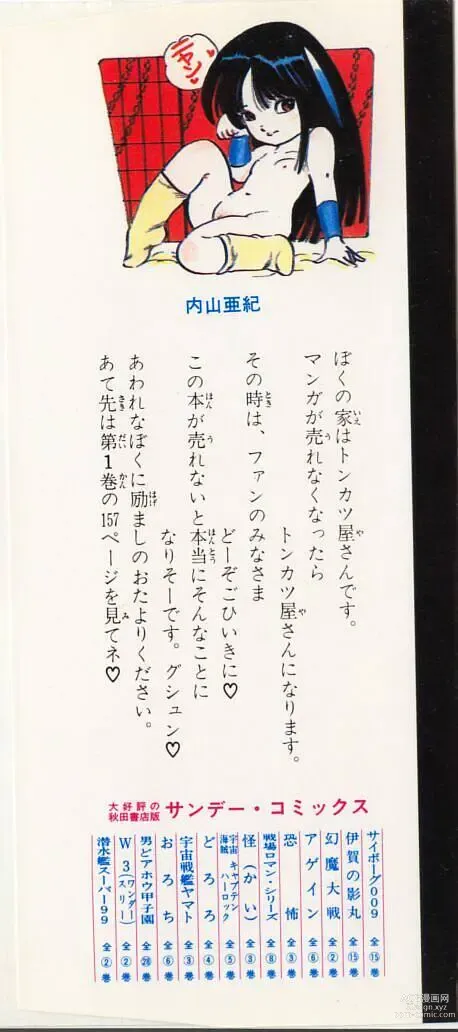 ニャン♡
内山亜紀
ぼくの家はトンカツ屋さんです。
マンガが売れなくなったら
トンカツ屋さんになります。
その時は、ファンのみなさま
どーぞごひいきに♡
この本が売れないと本当にそんなことに
なりそーです。グシュン♡
あわれなぼくに励ましのおたよりください。
あて先は第1巻の157ページを見てネ♡
大好評の
秋田書店版
サンデー・コミックス
サイボーグ009 全⑮巻
伊賀の影丸 全⑮巻
幻魔大戦 全②巻
アゲイン 全⑥巻
恐怖 全③巻
戦場ロマン・シリーズ 全⑧巻
怪(かい) 全③巻
宇宙海賊キャプテンハーロック 全⑤巻
どろろ 全④巻
宇宙戦艦ヤマト 全③巻
おろち 全⑥巻
男どアホウ甲子園 全㉘巻
W3(ワンダースリー) 全②巻
潜水艦スーパー99 全②巻